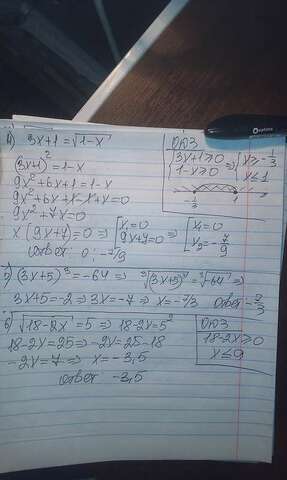 4) 3x+1=√1-x
(3x+1)²=1-x
9x²+6x+1=1-x
9x²+6x+1-1+x=0
9x²+7x=0
x(9x+7)=0 ⇒ [x₁=0 9x+7=0 ⇒ [x₁=0 x₂=-7/9
ответ: 0; -7/9
ОДЗ
{3x+1≥0 1-x≥0 ⇒ {x≥-1/3 x≤1
-1/3 1
5) (3x+5)³=-64 ⇒ ³√(3x+5)³=³√-64 ⇒
3x+5=-2 ⇒ 3x=-7 ⇒ x=-7/3 ответ -7/3
6) √18-2x=5 ⇒ 18-2x=5²
18-2x=25 ⇒ -2x=25-18
-2x=7 ⇒ x=-3,5
ответ -3,5
ОДЗ
18-2x≥0
x≤9